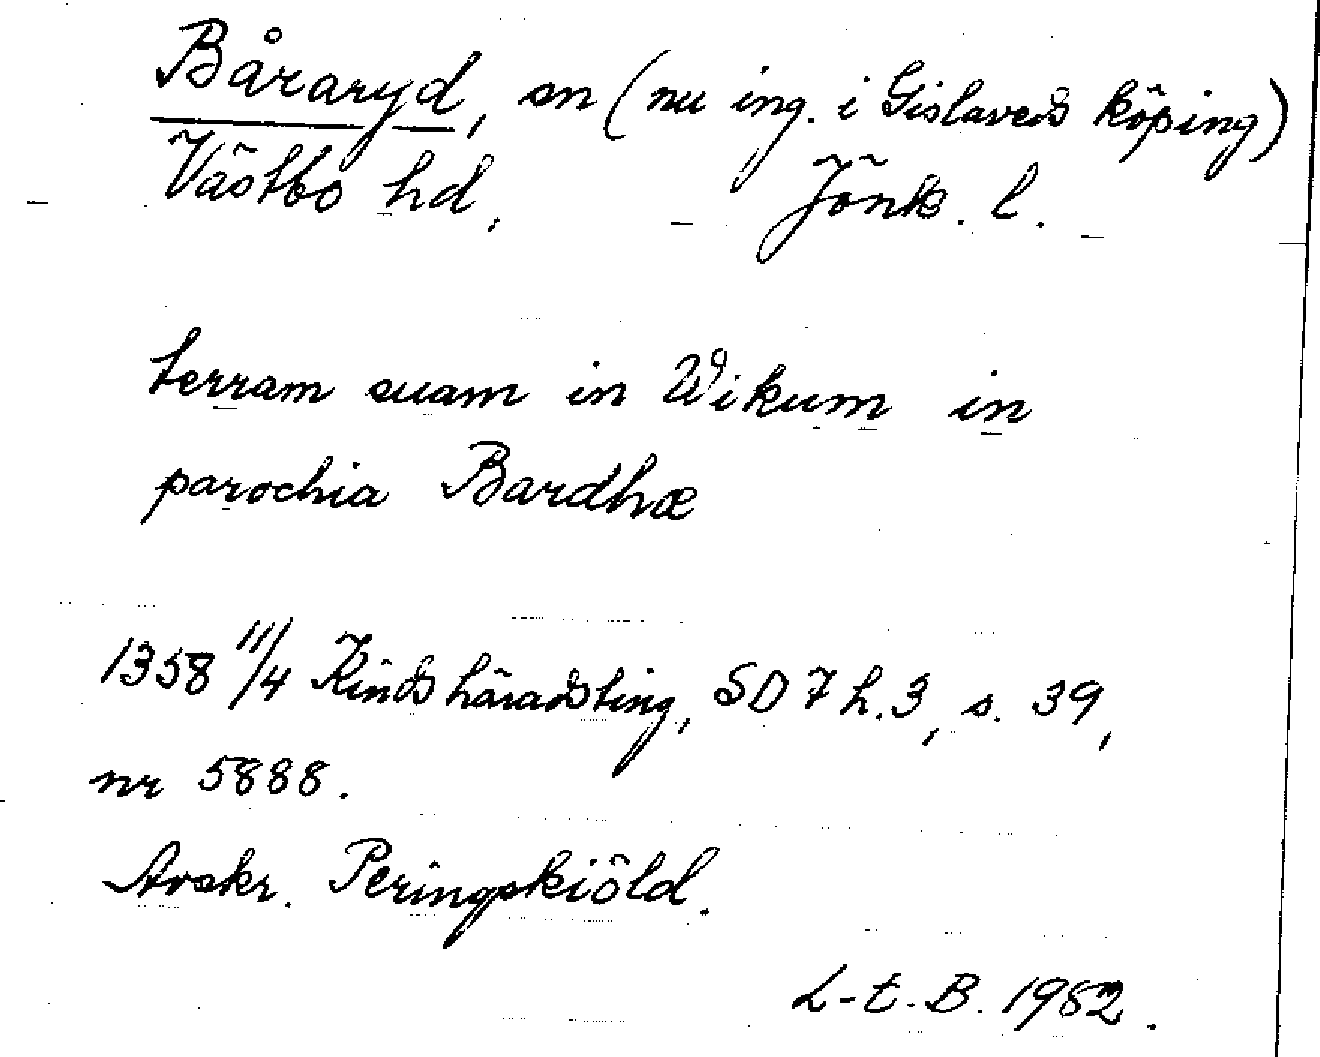 Båraryd, sn (nu ing. i Gislaveds köping)
Västbo hd. Jönk. l.
terram suam in Wikum in
parochia Bardhæ
1358 11/4 Kinds häradsting, SD 7 h. 3, s. 39,
nr 5888.
Avskr. Peringskiöld.
L-E. B. 1982.